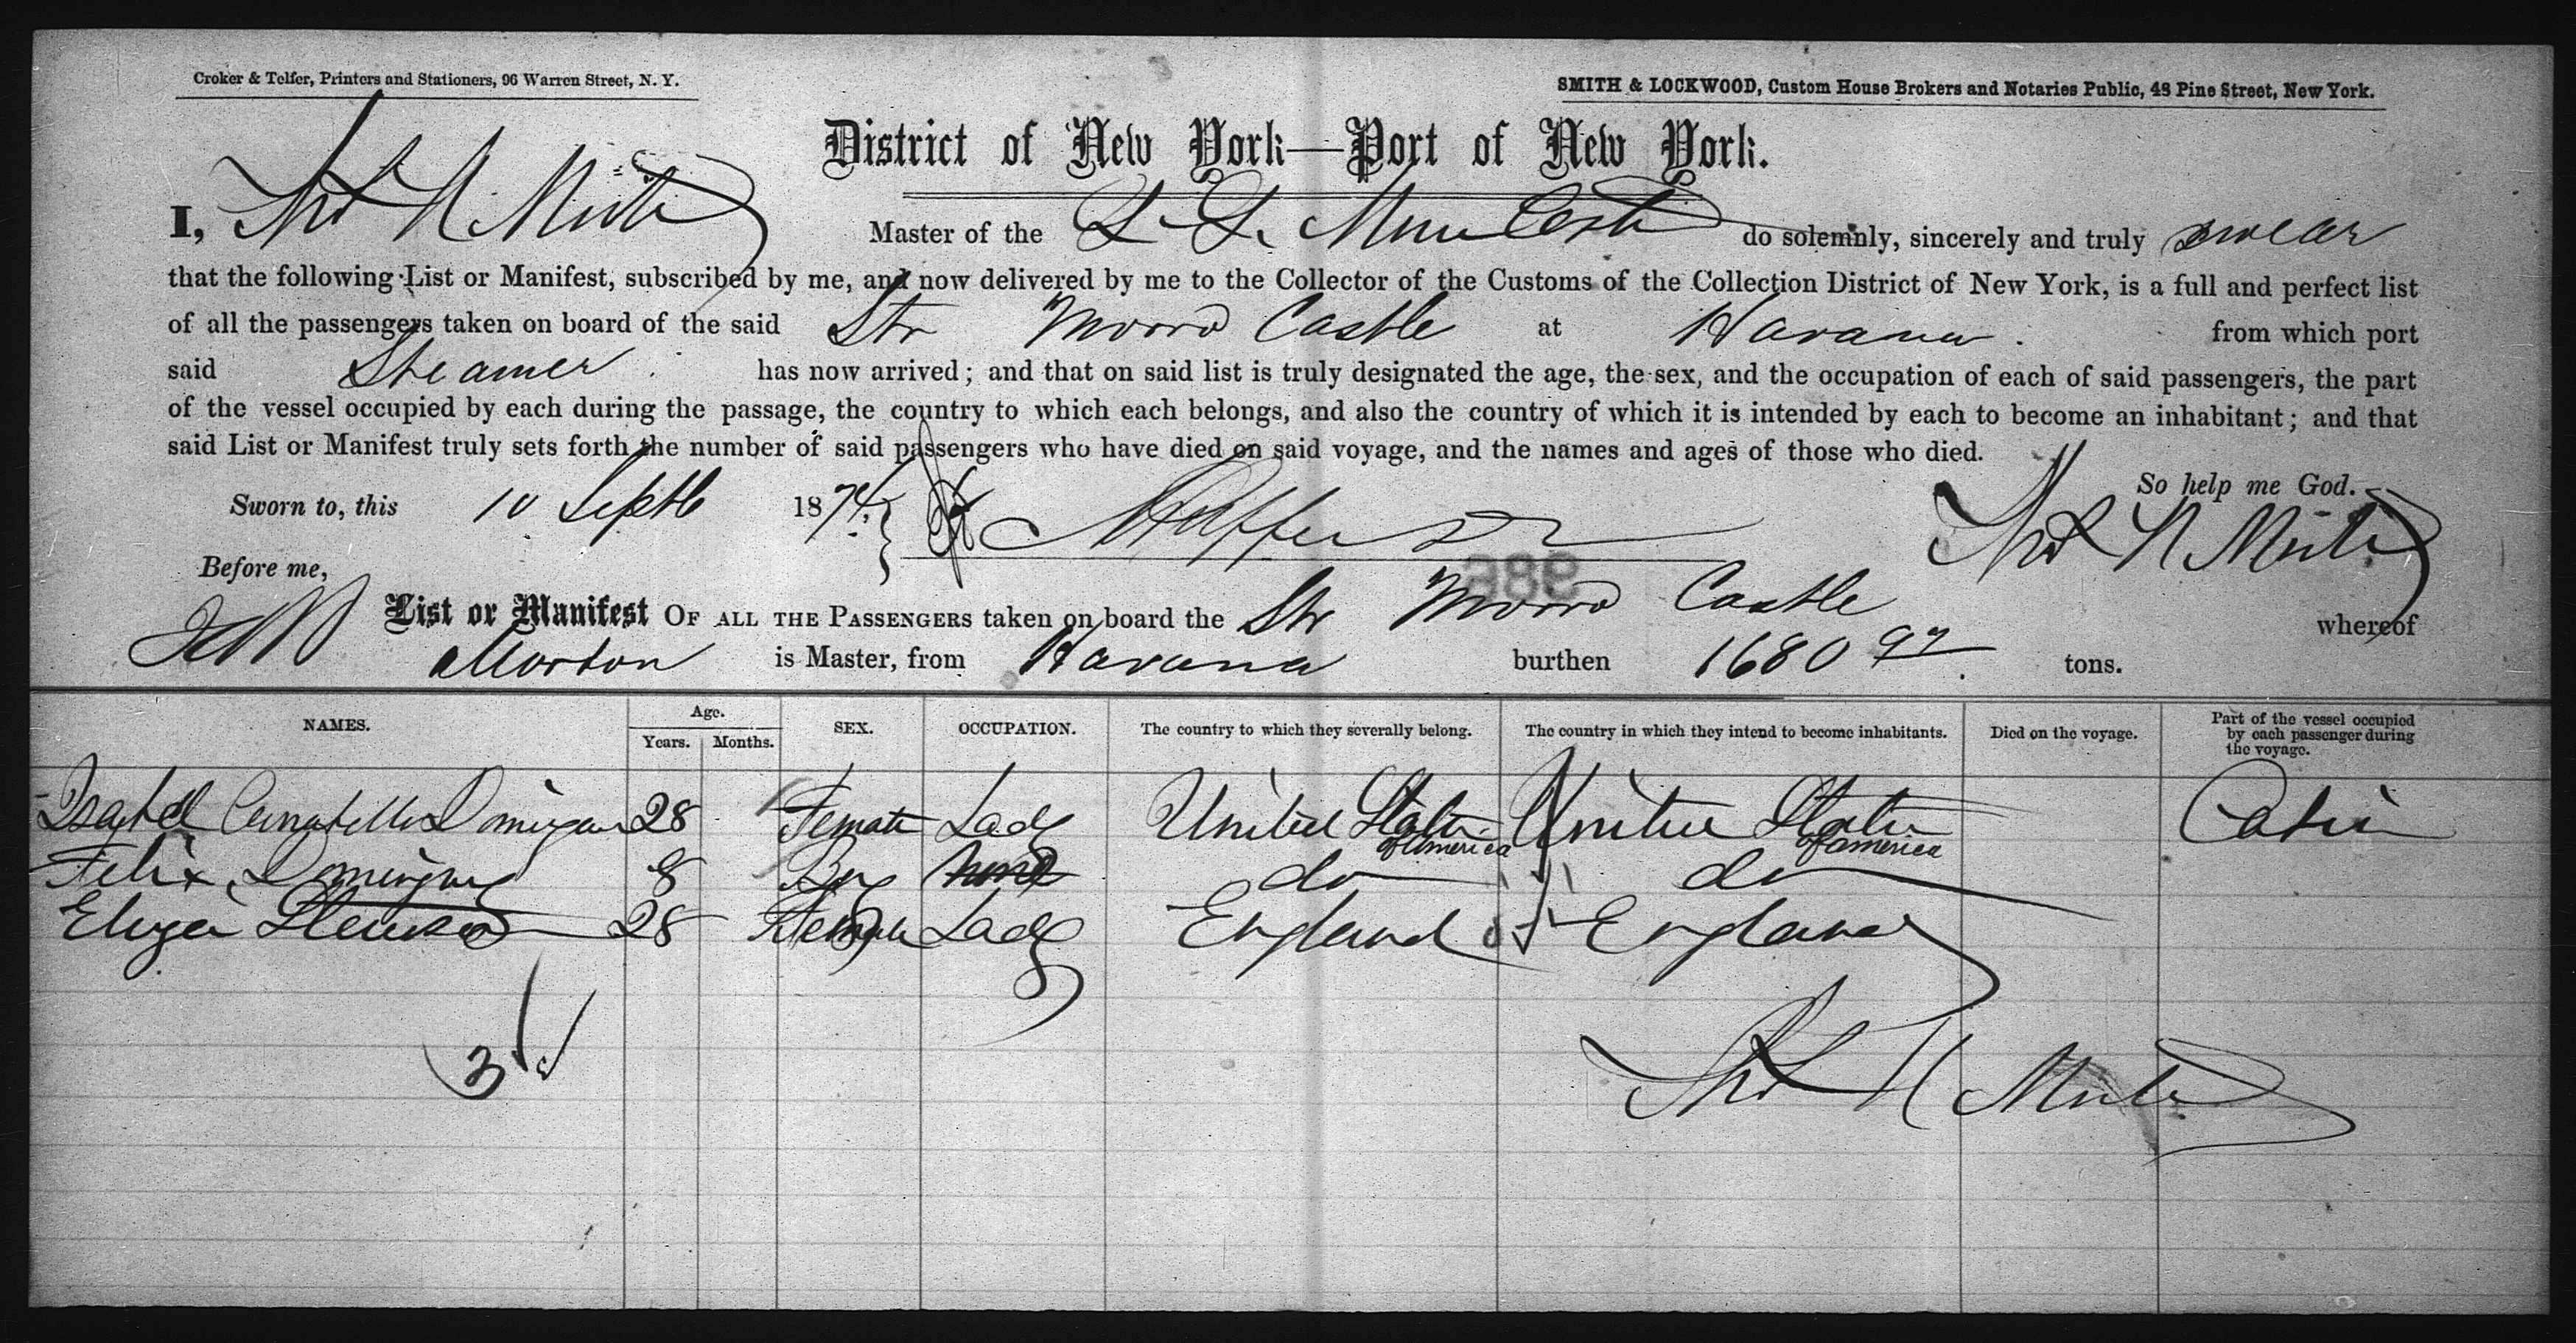 Croker & Telfer, Printers and Stationers, 96 Warren Street, N. Y.
SMITH & LOCKWOOD, Custom House Brokers and Notaries Public, 48 Pine Street, New York.
District of New York—Port of New York.
I, Master of the S. S. Morro Castle do solemnly, sincerely and truly swear
that the following List or Manifest, subscribed by me, and now delivered by me to the Collector of the Customs of the Collection District of New York, is a full and perfect list
of all the passengers taken on board of the said Str Morro Castle at Havana. from which port
said Steamer has now arrived; and that on said list is truly designated the age, the sex, and the occupation of each of said passengers, the part
of the vessel occupied by each during the passage, the country to which each belongs, and also the country of which it is intended by each to become an inhabitant; and that
said List or Manifest truly sets forth the number of said passengers who have died on said voyage, and the names and ages of those who died.
So help me God.
Sworn to, this 10 Septb 1874.
Before me,
986
List or Manifest OF ALL THE PASSENGERS taken on board the Str Morro Castle whereof
Morton is Master, from Havana burthen 1680 97 tons.
NAMES. Age. Years. Months. SEX. OCCUPATION. The country to which they severally belong. The country in which they intend to become inhabitants. Died on the voyage. Part of the vessel occupied by each passenger during the voyage.
Isabel 28 Female Lady United States of America United States of America Cabin
Felix Dominguez 8 Boy none do do
Eliza 28 Female Lady England England
3